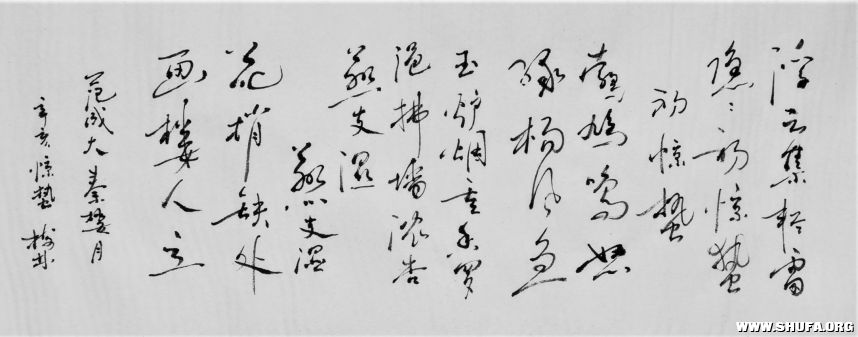 浮云集轻雷
隐隐初惊蛰
初惊蛰
鹁鸠鸣怒
绿杨风急
玉炉烟重香罗
浥拂墙浓杏
燕支湿
燕支湿
花梢缺处
画楼人立
范成大秦楼月
辛亥惊蛰
WWW.SHUFA.ORG